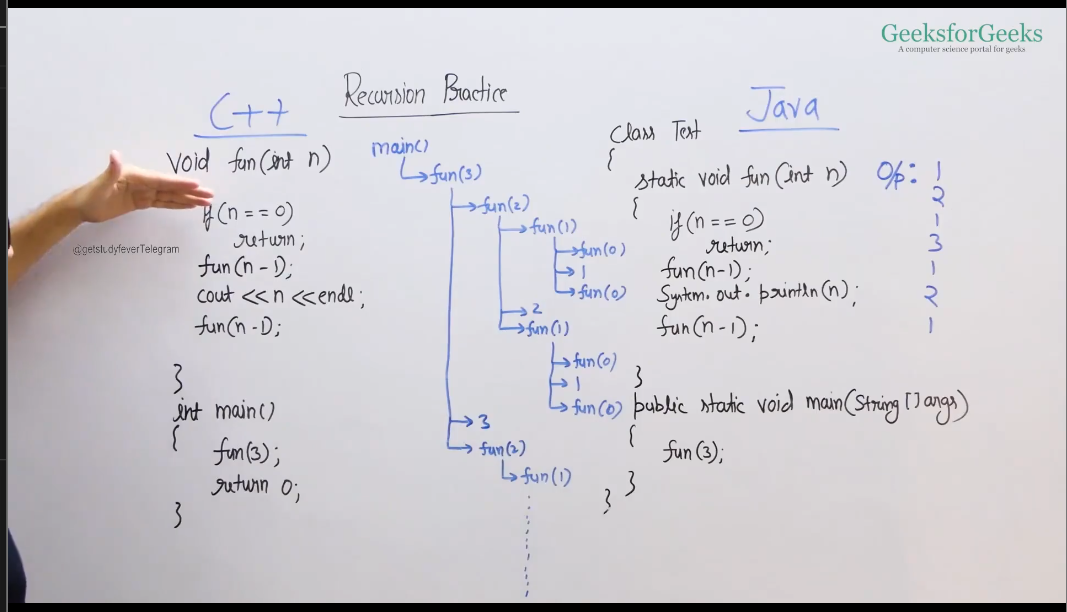 GeeksforGeeks
A computer science portal for geeks
Recursion Practice
C++
void fun(int n)
if(n==0)
return;
fun(n-1);
cout <<n <<endl;
fun(n-1);
}
int main()
{
fun(3);
return 0;
}
@getstudyfeverTelegram
main()
fun(3)
fun(2)
fun(1)
fun(0)
1
fun(0)
2
fun(1)
fun(0)
1
fun(0)
3
fun(2)
fun(1)
Java
Class Test
{
static void fun(int n)
{
if(n==0)
return;
fun(n-1);
System.out.println(n);
fun(n-1);
}
public static void main(String [] args)
{
fun(3);
}
}
O/p: 1
2
1
3
1
2
1